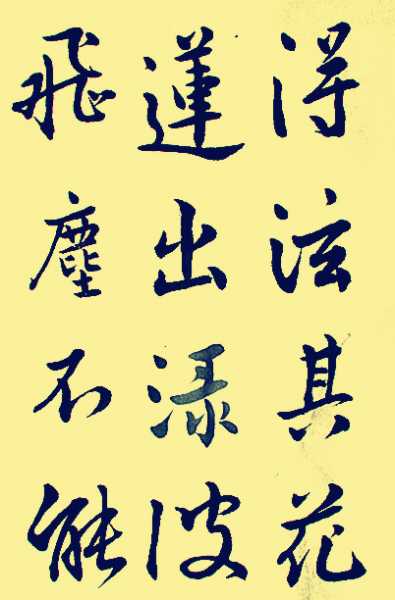 得泫其花
蓮出渌波
飛塵不能